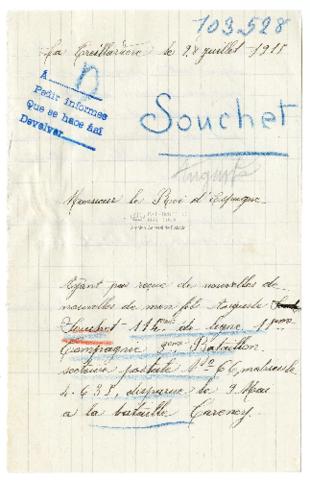 103.528
La Treillardière le 28 juillet 1915
A
D
Pedir informes
Que se hace Así
Devolver
Souchet
Auguste
Monsieur le Roi d'Espagne
Ayant pas reçue de nouvelles de
nouvelles de mon fils Auguste
Souchet 114 de ligne 1
Compagnie Bataillon
secteur postale Nº 66, matricule
4.635, disparue le 9 Mai
a la bataille Carency.